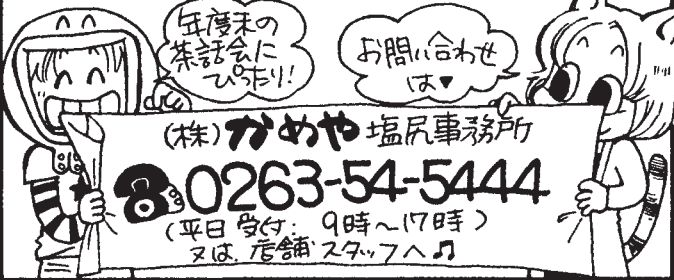 年度末の
茶話会に
ぴったり!
お問い合わせ
は♥
(株)かめや 塩尻事務所
☎0263-54-5444
(平日受付: 9時〜17時)
又は、店舗スタッフへ♫